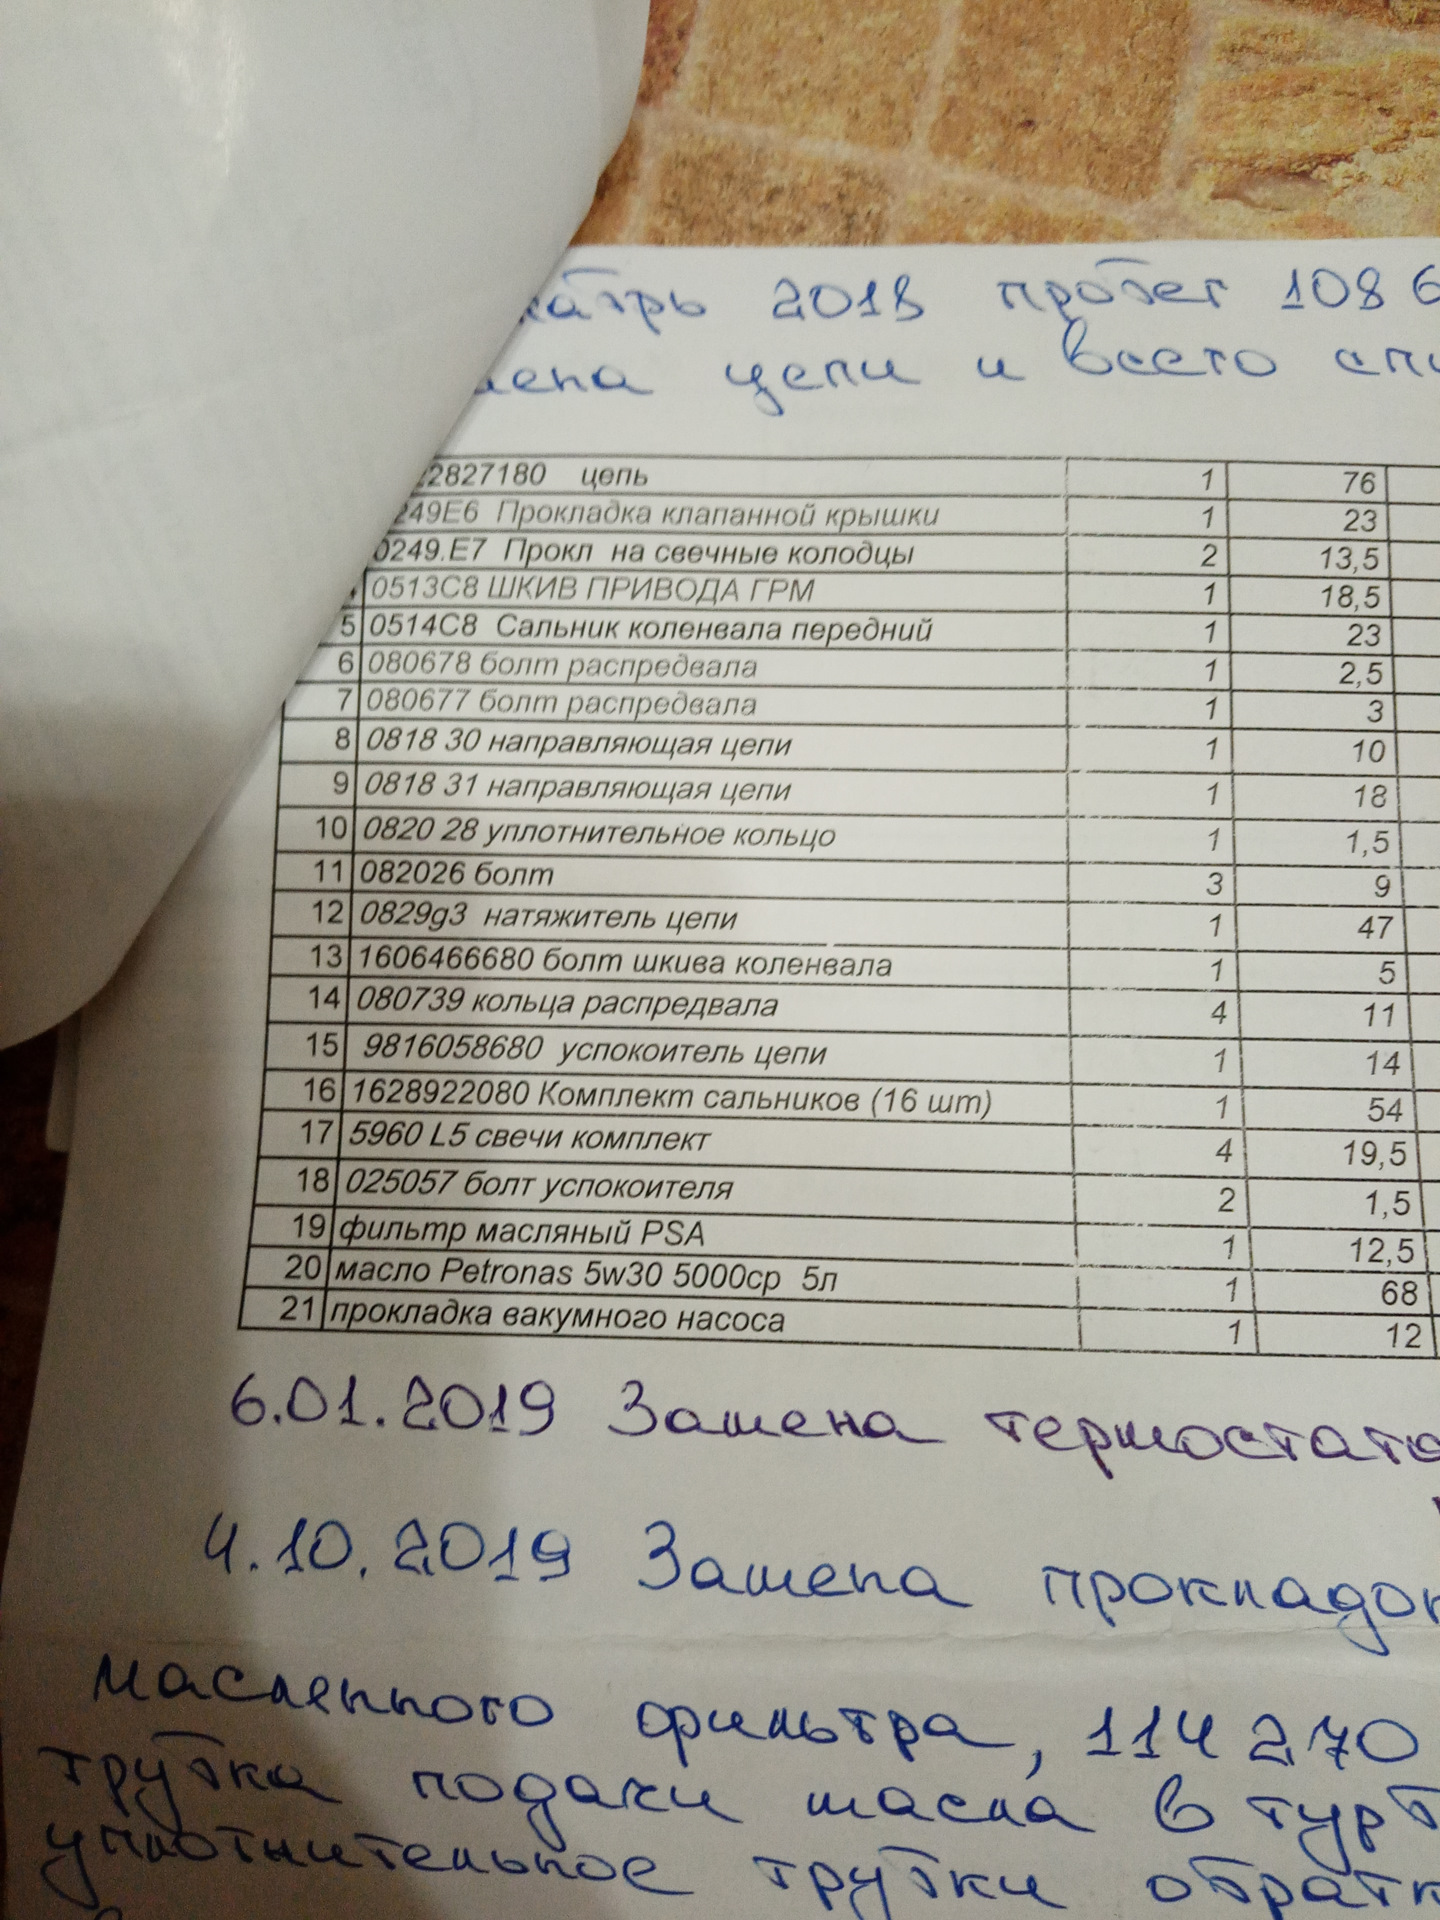 2018 пробег 108 6
цепи и всего
2827180 цепь 1 76
249E6 Прокладка клапанной крышки 1 23
0249.E7 Прокл на свечные колодцы 2 13,5
0513C8 ШКИВ ПРИВОДА ГРМ 1 18,5
5 0514C8 Сальник коленвала передний 1 23
6 080678 болт распредвала 1 2,5
7 080677 болт распредвала 1 3
8 0818 30 направляющая цепи 1 10
9 0818 31 направляющая цепи 1 18
10 0820 28 уплотнительное кольцо 1 1,5
11 082026 болт 3 9
12 0829g3 натяжитель цепи 1 47
13 1606466680 болт шкива коленвала 1 5
14 080739 кольца распредвала 4 11
15 9816058680 успокоитель цепи 1 14
16 1628922080 Комплект сальников (16 шт) 1 54
17 5960 L5 свечи комплект 4 19,5
18 025057 болт успокоителя 2 1,5
19 фильтр масляный PSA 1 12,5
20 масло Petronas 5w30 5000ср 5л 1 68
21 прокладка вакумного насоса 1 12
6.01.2019 Замена термостата
4.10.2019 Замена прокладок
масленного фильтра, 114 270
трубка подачи масла в турб
уплотнительное трубки обратк